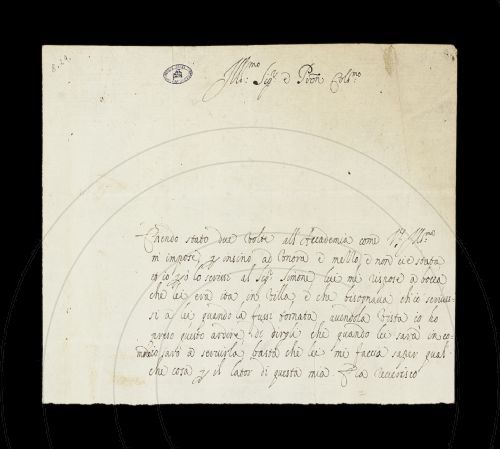 8.29.
Ill:mo Sig:r e Pron Col:mo
Essendo stato due volte all'Accademia come V.S. Ill:ma
m'impose, e insino ad hora è mello, e non vè stata
io scrissi al Sig:r Simone lui mi rispose a bocca
che lei era ita in villa, e che bisognava ch'io scrives-
si a lei quando la fussi tornata, avendola vista io ho
preso questo ardire, di dirgli che quando lei sarà in co-
modo io sarò a servirla basta che lei mi faccia saper qual
che cosa p il lator di questa mia. E la reverisco